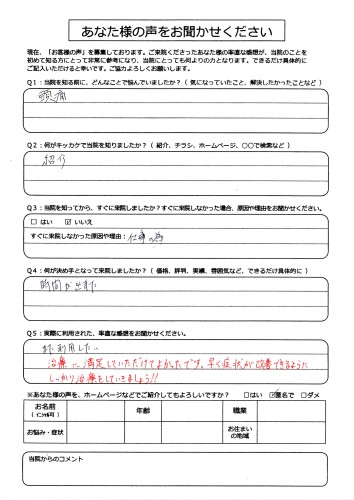 あなた様の声をお聞かせください
現在、「お客様の声」を募集しております。ご来院くださったあなた様の率直な感想が、当院のことを
初めて知る方にとって非常に参考になり、当院にとっても何よりの力となります。できるだけ具体的に
ご記入いただけると幸いです。ご協力よろしくお願いします。
Q1：当院を知る前に、どんなことで悩んでいましたか？（ 気になっていたこと、解決したかったことなど ）
頭痛
Q2：何がキッカケで当院を知りましたか？（ 紹介、チラシ、ホームページ、〇〇で検索など ）
紹介
Q3：当院を知ってから、すぐに来院しましたか？すぐに来院しなかった場合、原因や理由をお聞かせください。
□ はい ☑ いいえ
すぐに来院しなかった原因や理由：仕事の為
Q4：何が決め手となって来院しましたか？（ 価格、評判、実績、雰囲気など、できるだけ具体的に ）
時間が出来た
Q5：実際に利用された、率直な感想をお聞かせください。
また利用したい
治療に満足していただけてよかったです。早く症状が改善できるように
しっかり治療をしていきましょう!!
※あなた様の声を、ホームページなどでご紹介してもよろしいですか？ □はい ☑匿名で □ダメ
お名前 年齢 職業
（ｲﾆｼｬﾙ可）
お悩み・症状 お住まい
の地域
当院からのコメント